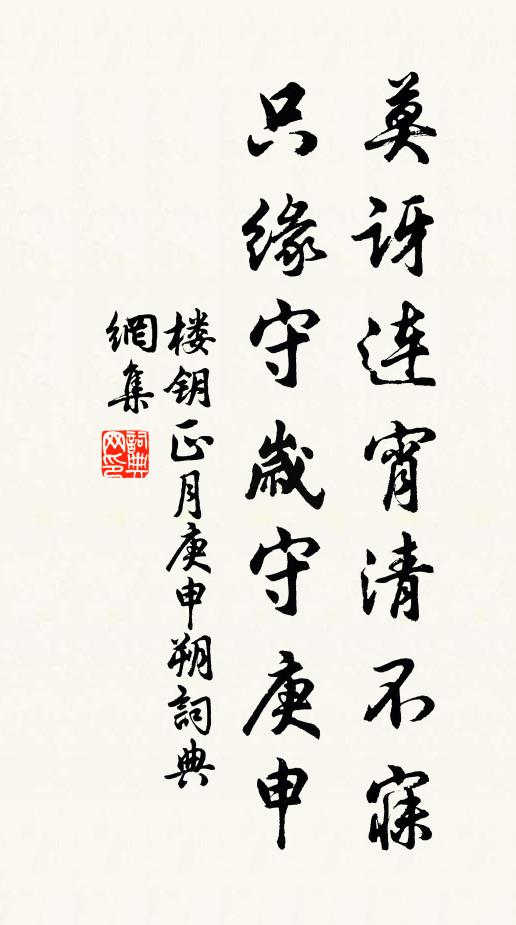 莫讶连宵清不寐
只缘守岁守庚申
楼钥正月庚申朔詞典
網集
詞典
网印